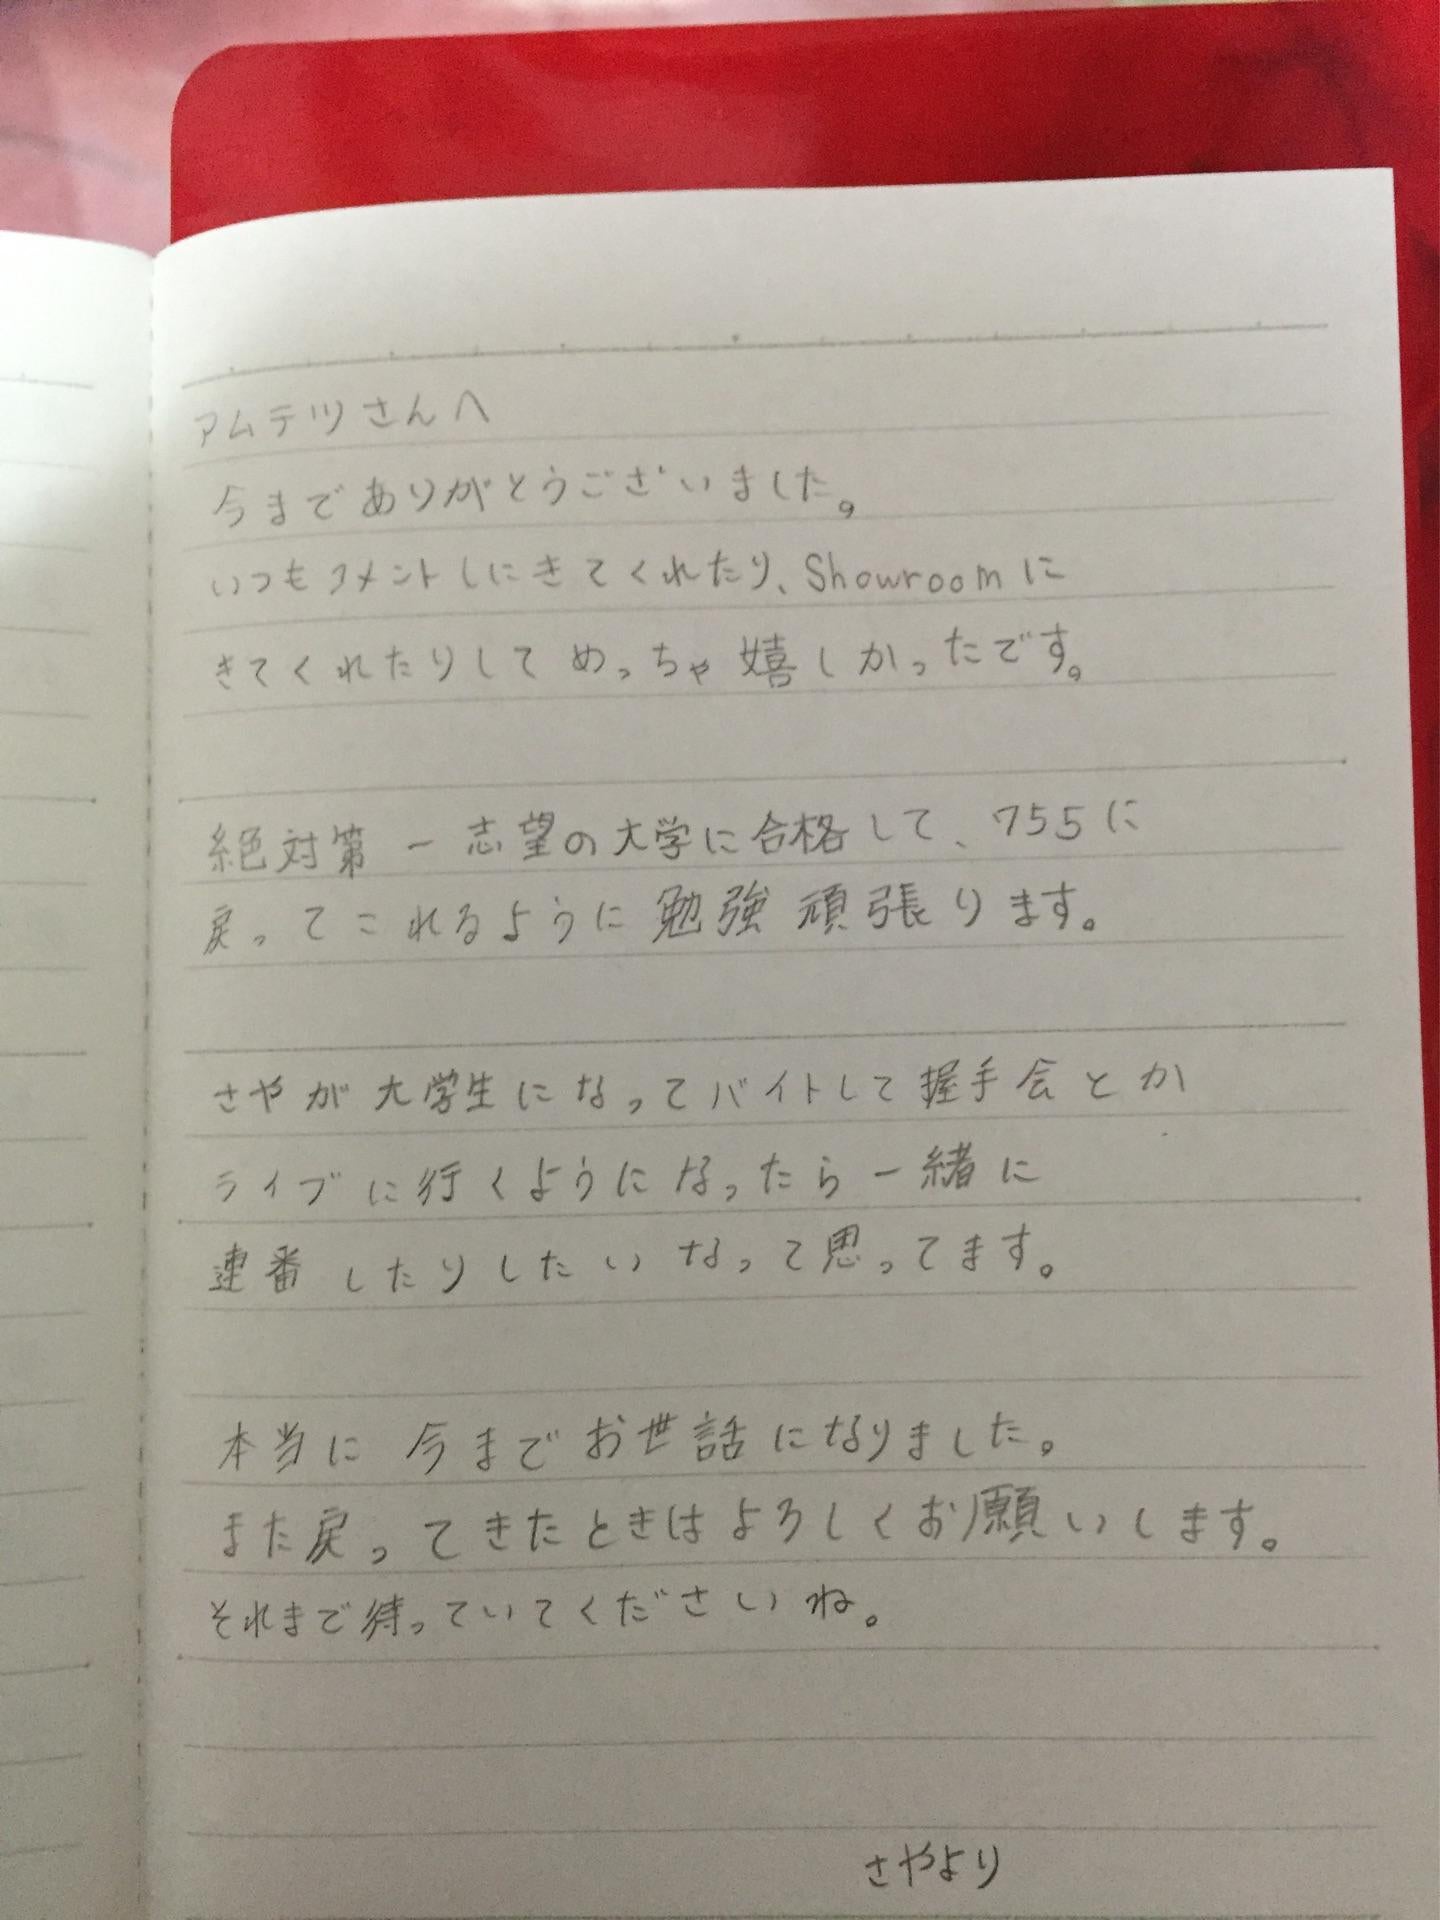 アムテツさんへ
今までありがとうございました。
いつもコメントしにきてくれたり、Showroomに
きてくれたりしてめっちゃ嬉しかったです。
絶対第一志望の大学に合格して、755に
戻ってこれるように勉強頑張ります。
さやが大学生になってバイトして握手会とか
ライブに行くようになったら一緒に
連番したりしたいなって思ってます。
本当に今までお世話になりました。
また戻ってきたときはよろしくお願いします。
それまで待っていてくださいね。
さやより